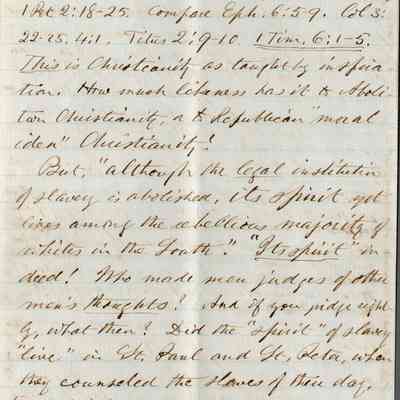 1 Pet 2:18-25. Compare Eph. 6:5-9. Col 3:
22-25. 4:1. Titus 2:9-10. 1 Tim. 6:1-5.
This is Christianity as taught by inspira
tion. How much likeness has it to Aboli
tion Christianity, or to Republican "moral
idea" Christianity!
But, "although the legal institution
of slavery is abolished, its spirit yet
lives among the rebellious majority of
whites in the South". "Its spirit" in
deed! Who made men judges of other
men's thoughts? And if you judge right
ly, what then? Did the "spirit" of slavery
"live" in St. Paul and St. Peter, when
they counseled the slaves of their day,